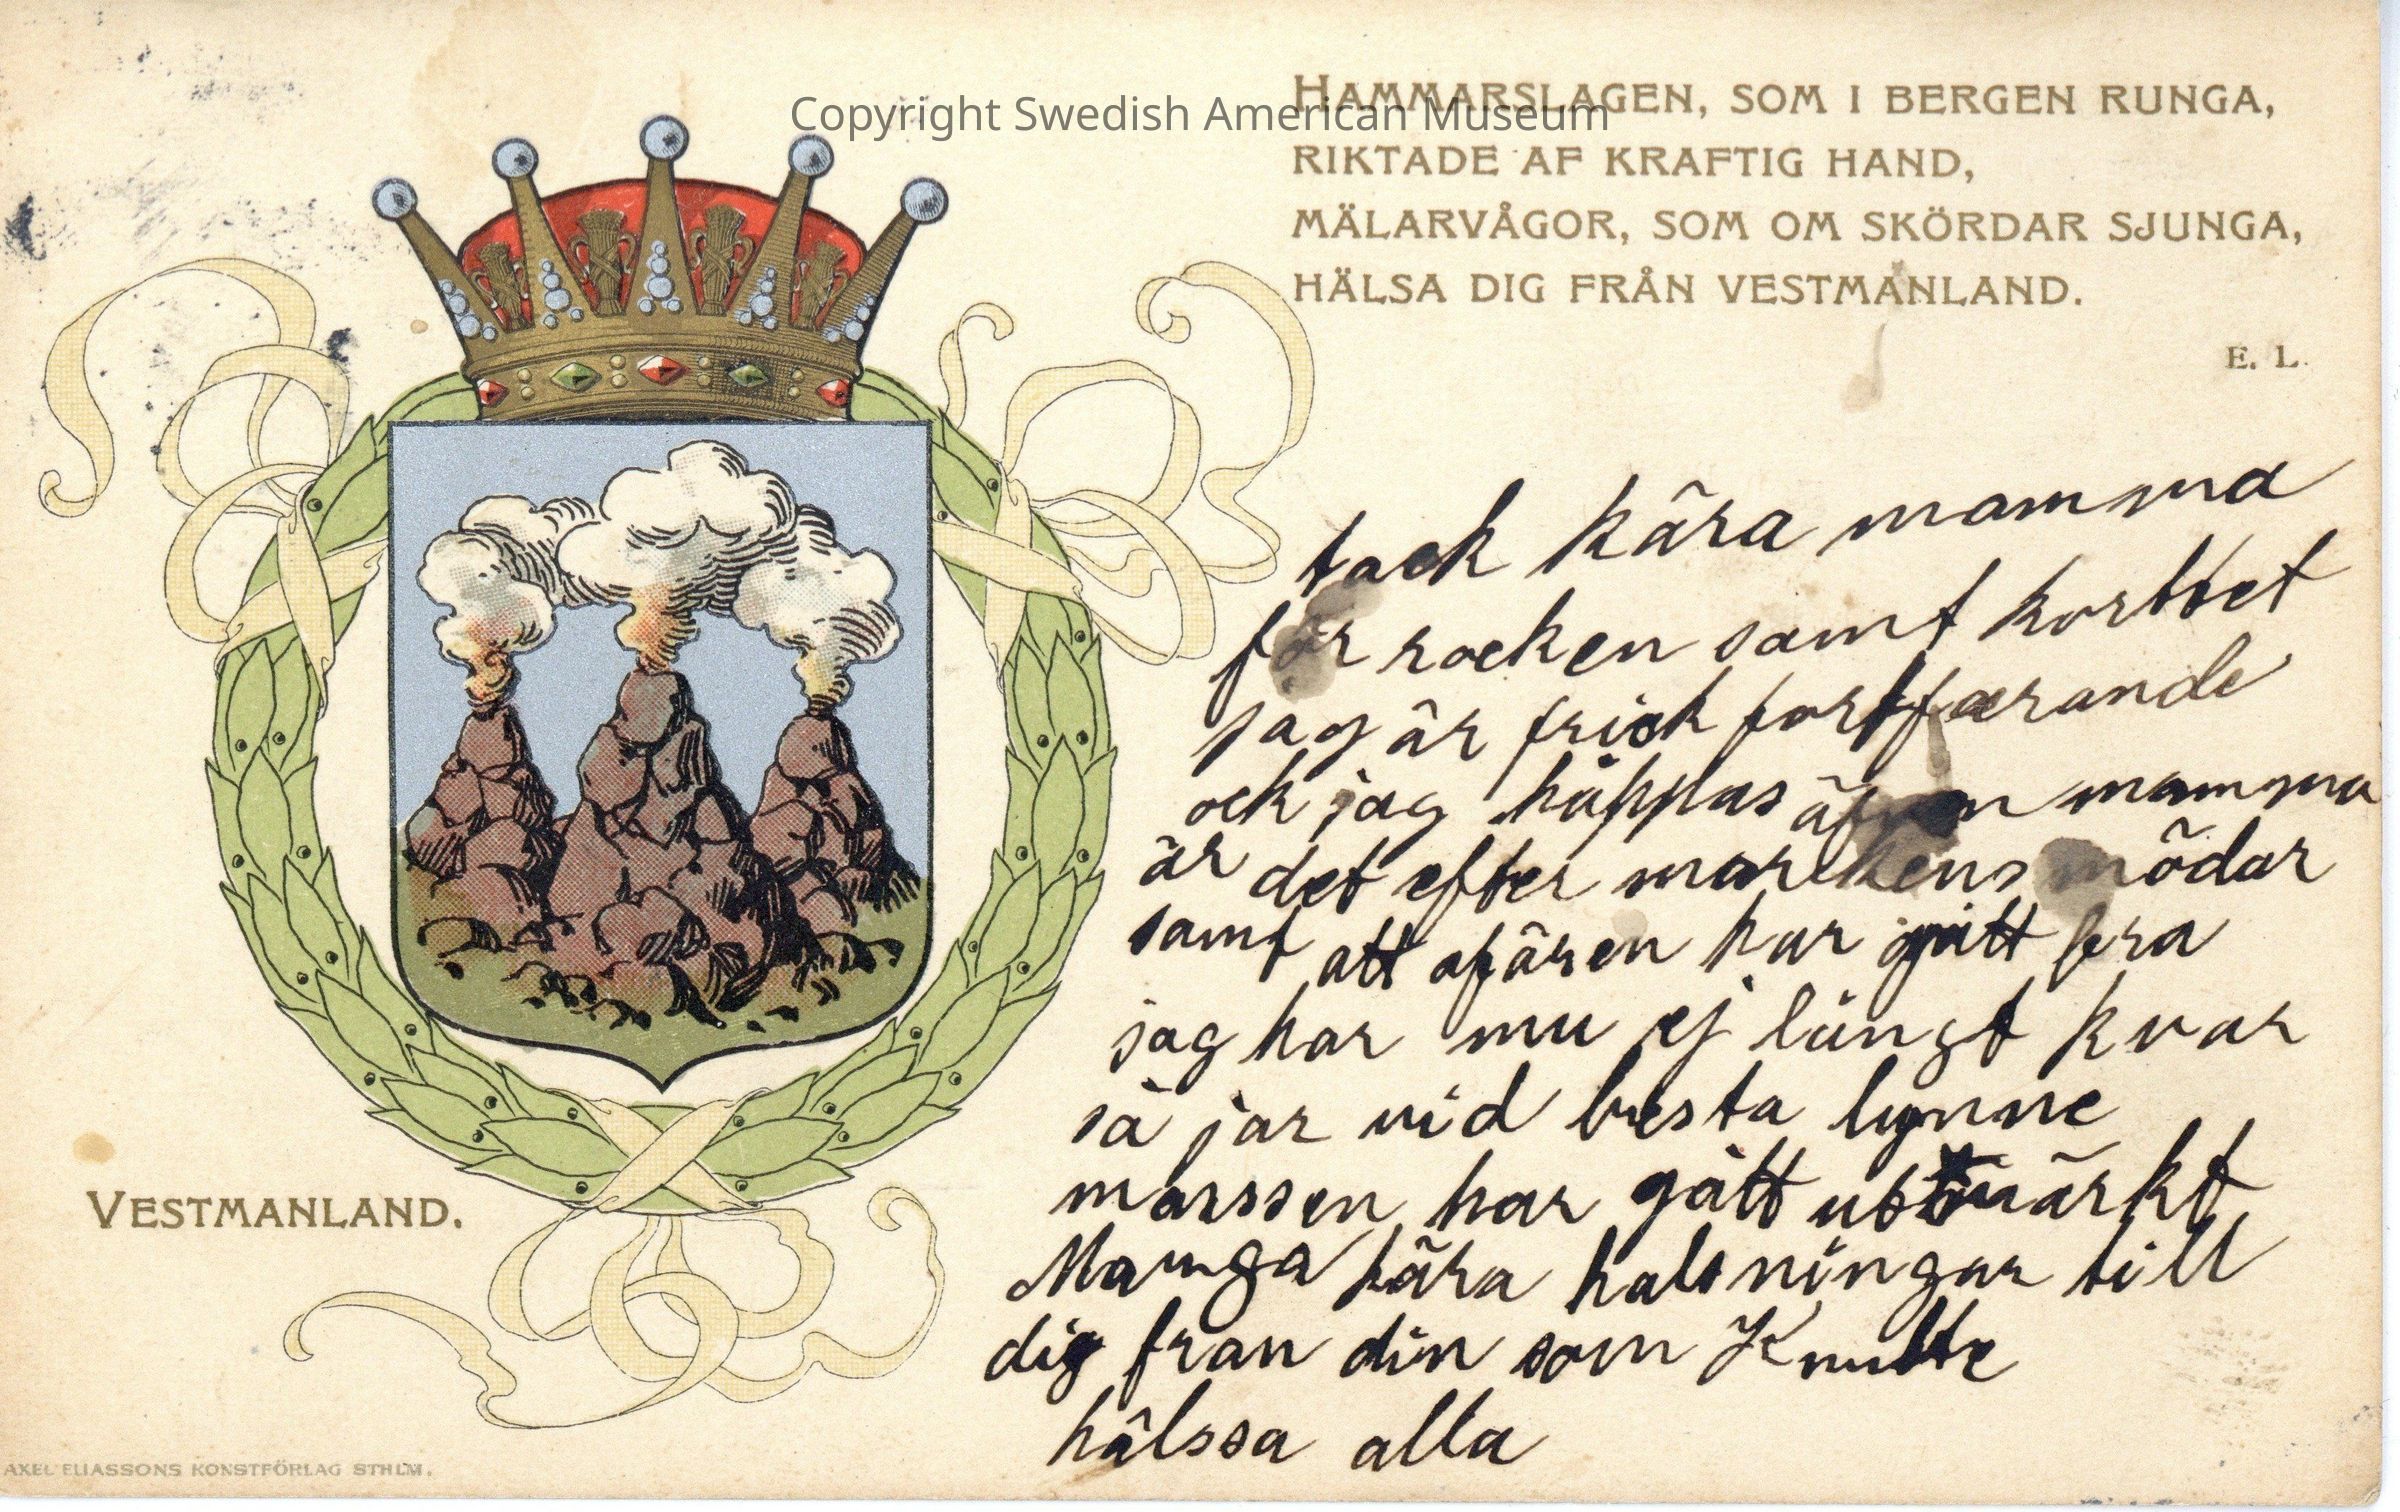 Copyright Swedish American Museum
HAMMARSLAGEN, SOM I BERGEN RUNGA,
RIKTADE AF KRAFTIG HAND,
MÄLARVÅGOR, SOM OM SKÖRDAR SJUNGA,
HÄLSA DIG FRÅN VESTMANLAND.
E. L.
tack kära mamma
för rocken samt korttet
jag är frisk fortfarande
ock jag håppas äfven mamma
är det efter markens mödar
samt att afären har gått bra
jag har nu ej långt kvar
så jar vid besta lynne
marssen har gått utmärkt
Manga kära halsningar till
dig fran din son Knutte
hälssa alla
VESTMANLAND.
AXEL ELIASSONS KONSTFÖRLAG STHLM.